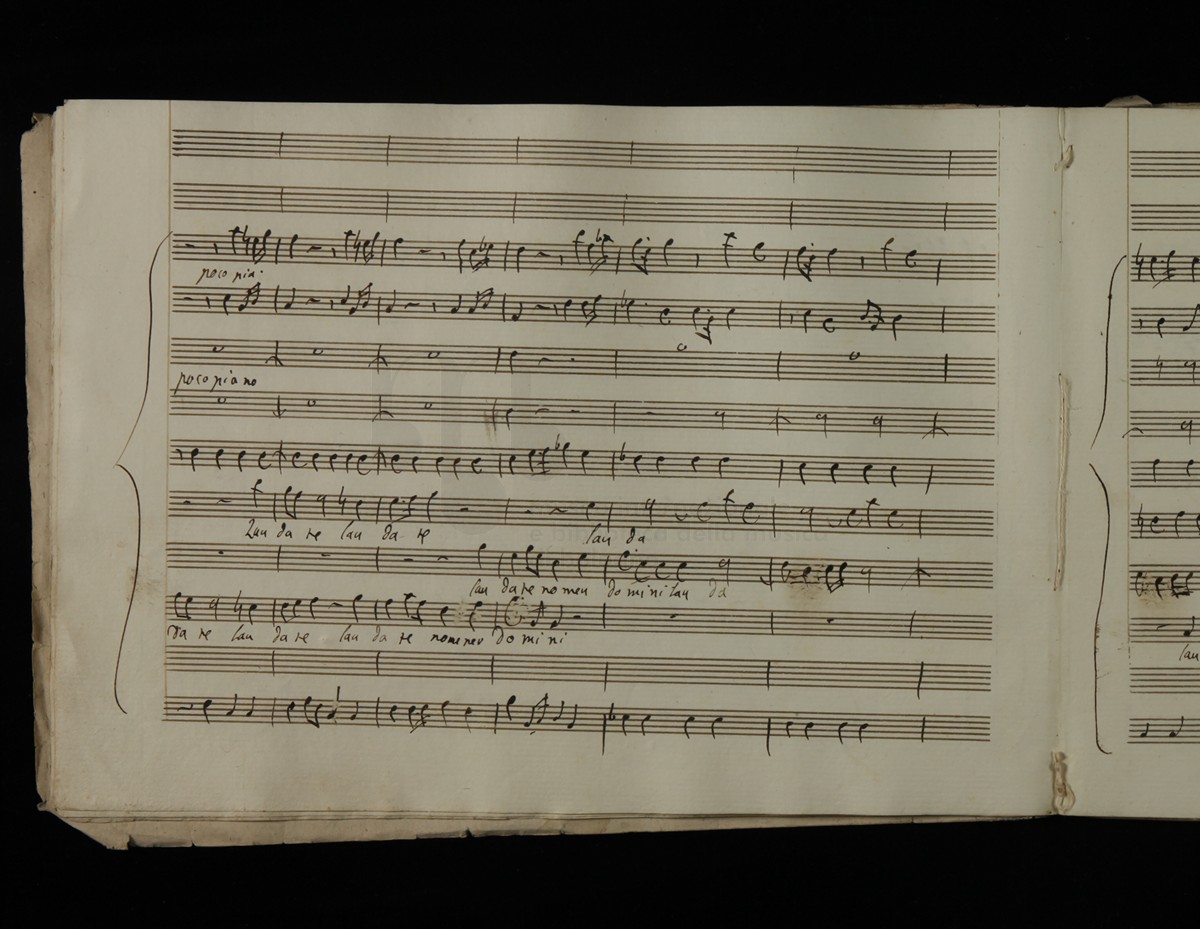 poco pia:
poco piano
Lau da te lau da te lau da
e biblioteca della musica
lau da te no men do mi ni lau da
da te lau da te lau da te nomen do mi ni
lau